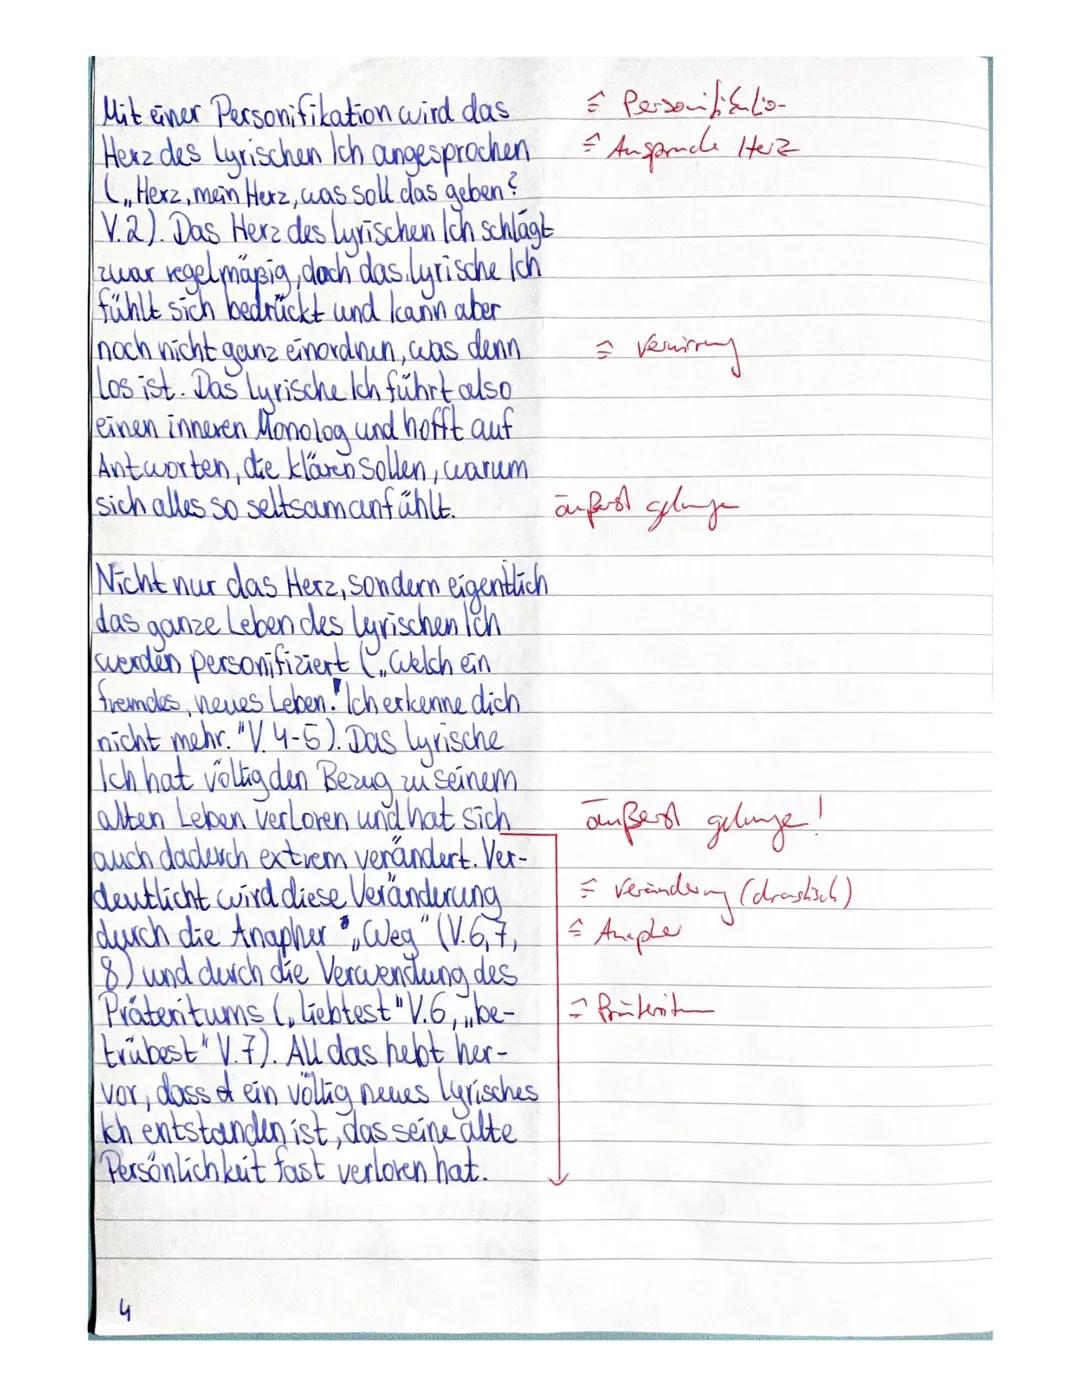 Mit einer Personifikation wird das
Herz des lyrischen Ich angesprochen
(„Herz, mein Herz, was soll das geben?
V.2). Das Herz des lyrischen Ich schlägt
zwar regelmäßig, doch das lyrische Ich
fühlt sich bedrückt und kann aber
noch nicht ganz einordnen, was denn
los ist. Das lyrische Ich führt also
einen inneren Monolog und hofft auf
Antworten, die klären sollen, warum
sich alles so seltsam anfühlt.
≙ Personifikatio-
≙ Ansprache Herz
≙ Verwirrung
äußerst gelungen
Nicht nur das Herz, sondern eigentlich
das ganze Leben des lyrischen Ich
werden personifiziert („Welch ein
fremdes, neues Leben! Ich erkenne dich
nicht mehr." V. 4-5). Das lyrische
Ich hat völlig den Bezug zu seinem
alten Leben verloren und hat sich
auch dadurch extrem verändert. Ver-
deutlicht wird diese Veränderung
durch die Anapher „Weg" (V.6,7,
8) und durch die Verwendung des
Präteritums („liebtest" V.6, „be-
trübest" V.7). All das hebt her-
vor, dass ein völlig neues lyrisches
Ich entstanden ist, das seine alte
Persönlichkeit fast verloren hat.
äußerst gelungen!
≙ Veränderung (drastisch)
≙ Anapher
≙ Präteritum
4